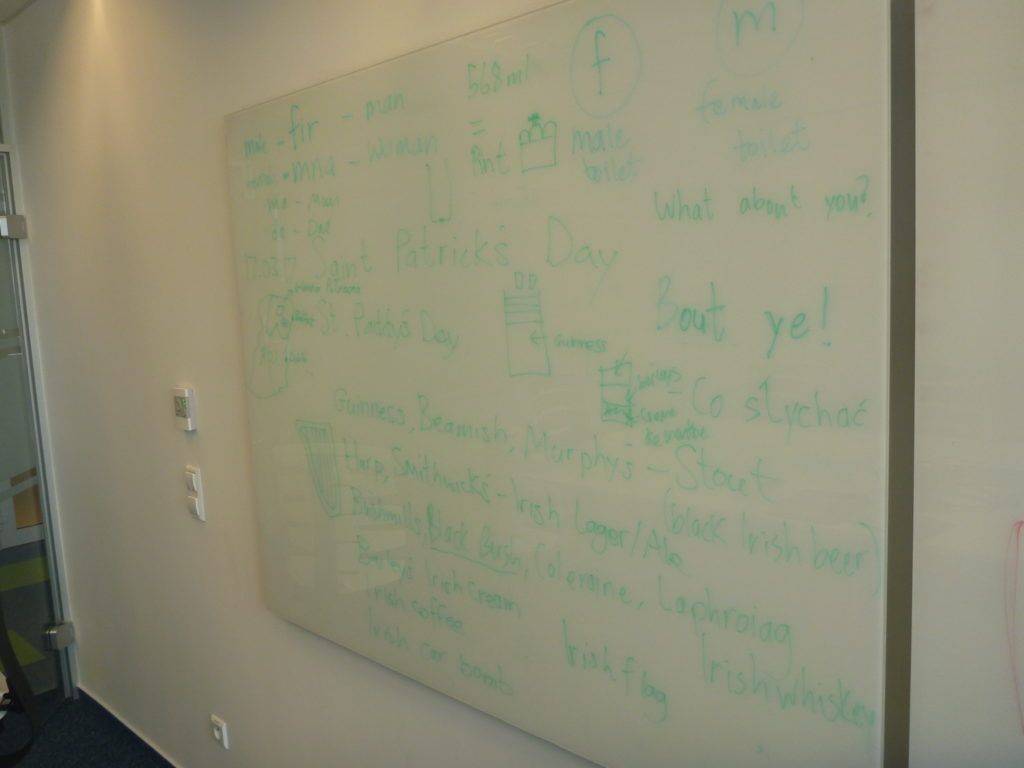 male - fir - man
mna - woman
568ml
=
Pint
f
male
toilet
m
female
toilet
What about you?
17.03.17 Saint Patrick's Day
St. Paddy's Day
Guinness
Bout ye!
Co słychać
Guinness, Beamish, Murphy's - Stout
(black Irish beer)
Harp, Smithwicks - Irish Lager/Ale
Bushmills, Black Bush, Coleraine, Laphroiag
Irish whiskey
Bailey's Irish cream
Irish coffee
Irish car bomb
Irish flag